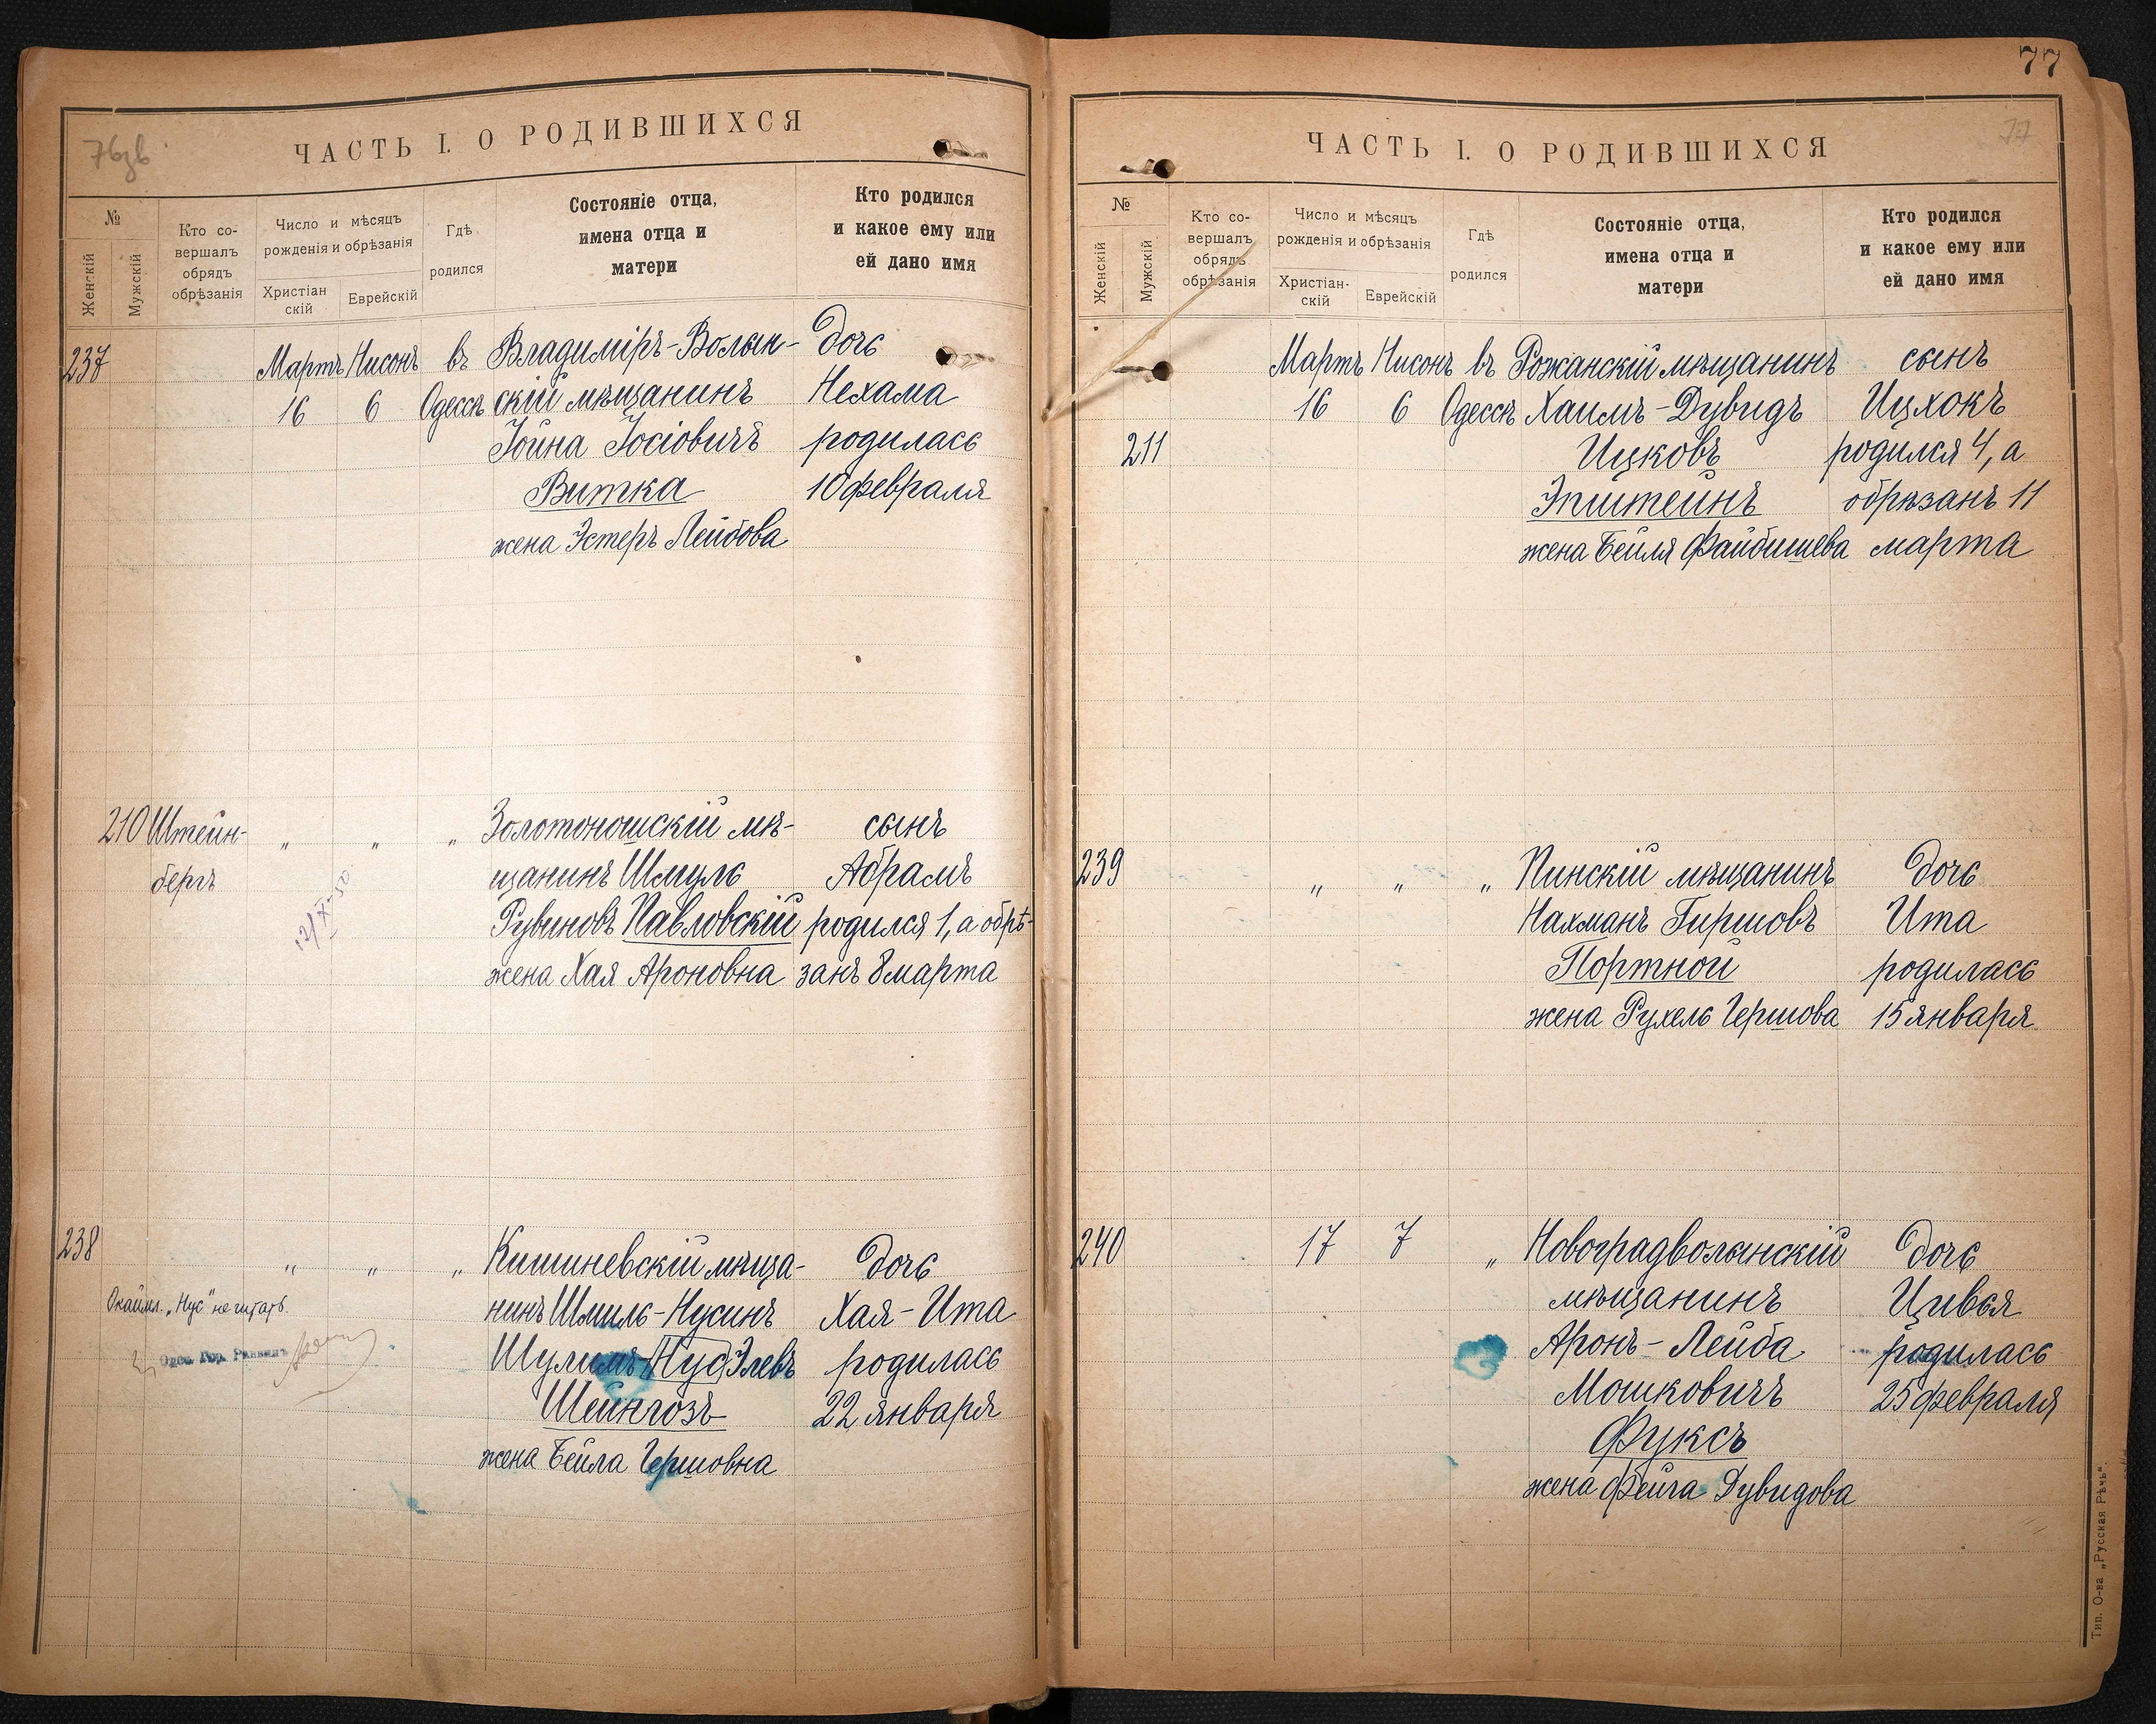 76зв
ЧАСТЬ I. О РОДИВШИХСЯ
№
Женскій
Мужскій
Кто со-
вершалъ
обрядъ
обрѣзанія
Число и мѣсяцъ
рожденія и обрѣзанія
Христіан
скій
Еврейскій
Гдѣ
родился
Состояніе отца,
имена отца и
матери
Кто родился
и какое ему или
ей дано имя
237
Мартъ Нисонъ въ Владиміръ-Волын- дочь
16 6 Одессѣ скій мѣщанинъ Нехама
Іойна Іосіовичъ родилась
Витка 10 февраля
жена Эстеръ Лейбова
210 Штейн- " " " Золотоношскій мѣ- сынъ
бергъ щанинъ Шмуль Абрамъ
Рувиновъ Павловскій родился 1, а обрѣ-
жена Хая Ароновна занъ 8 марта
12/X-50
238 " " " Кишиневскій мѣща- дочь
Окаймл. „Нус" не читать.
нинъ Шмиль-Нусинъ Хая-Ита
Одес. Гор. Раввинъ
Шулимъ Нус Элевъ родилась
Шейнгозъ 22 января
жена Бейла Гершовна
77
77
ЧАСТЬ I. О РОДИВШИХСЯ
№
Женскій
Мужскій
Кто со-
вершалъ
обрядъ
обрѣзанія
Число и мѣсяцъ
рожденія и обрѣзанія
Христіан-
скій
Еврейскій
Гдѣ
родился
Состояніе отца,
имена отца и
матери
Кто родился
и какое ему или
ей дано имя
Мартъ Нисонъ въ Рожанскій мѣщанинъ сынъ
16 6 Одессѣ Хаимъ-Дувидъ Ицхокъ
211 Ицковъ родился 4, а
Эпштейнъ обрѣзанъ 11
жена Бейля Файбишева марта
239 " " " Пинскій мѣщанинъ дочь
Нахманъ Гиршовъ Ита
Портной родилась
жена Рухель Гершова 15 января
240 17 7 " Новоградволынскій дочь
мѣщанинъ Цивья
Аронъ-Лейба родилась
Мошковичъ 25 февраля
Фуксъ
жена Фейга Дувидова
Тип. О-ва „Русская Рѣчь".